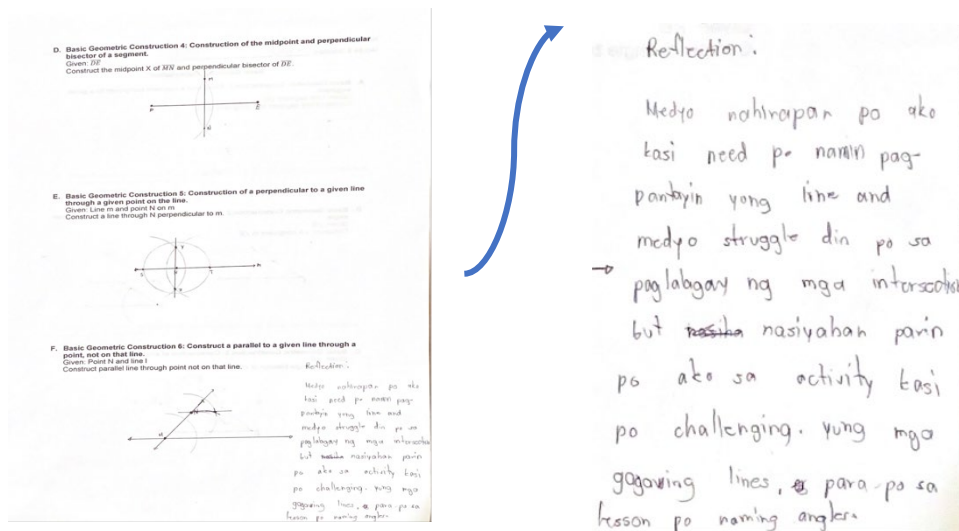 D. Basic Geometric Construction 4: Construction of the midpoint and perpendicular
bisector of a segment.
Given: DE
Construct the midpoint X of MN and perpendicular bisector of DE.
E. Basic Geometric Construction 5: Construction of a perpendicular to a given line
through a given point on the line.
Given: Line m and point N on m
Construct a line through N perpendicular to m.
F. Basic Geometric Construction 6: Construct a parallel to a given line through a
point, not on that line.
Given: Point N and line l
Construct parallel line through point not on that line.
Reflection:
Medyo nahirapan po ako
kasi need po namin pag-
pantayin yong line and
medyo struggle din po sa
paglalagay ng mga intersection
but nasiyahan parin
po ako sa activity kasi
po challenging. yung mga
gagawing lines, para po sa
lesson po naming angles.
Reflection:
Medyo nahirapan po ako
kasi need po namin pag-
pantayin yong line and
medyo struggle din po sa
paglalagay ng mga intersection
but nasiyahan parin
po ako sa activity kasi
po challenging. yung mga
gagawing lines, para po sa
lesson po naming angles.